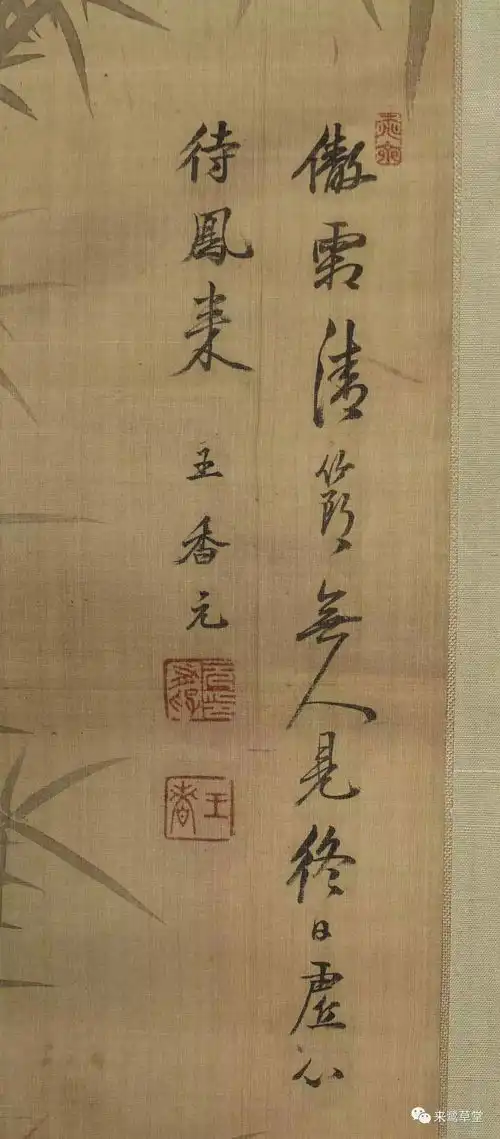 傲霜清節無人見終日虛心
待鳳来
王香元
王香
来鹭草堂